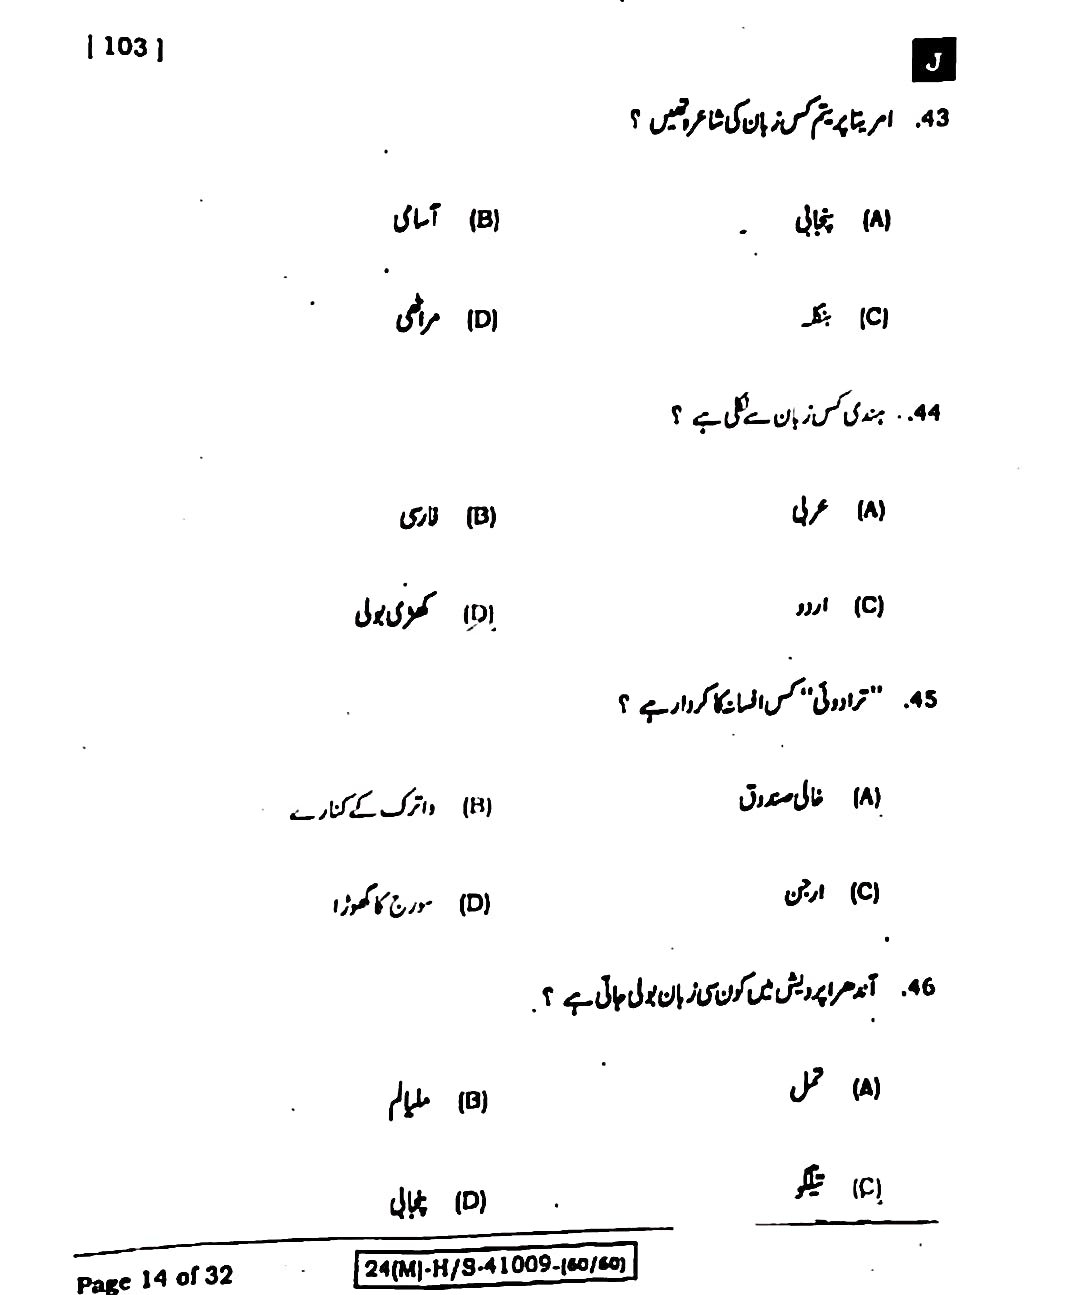 [ 103 ]
J
43. امریتا پریتم کس زبان کی شاعرہ تھیں ؟
(A) پنجابی (B) آسامی
(C) بنگلہ (D) مراٹھی
44. ہندی کس زبان سے نکلی ہے ؟
(A) عربی (B) فارسی
(C) اردو (D) کھڑی بولی
45. "ترادوئی" کس افسانہ کا کردار ہے ؟
(A) خالی صندوق (B) داترک کے کنارے
(C) ارجن (D) سورج کا گھوڑا
46. آندھرا پردیش میں کون سی زبان بولی جاتی ہے ؟
(A) تمل (B) ملیالم
(C) تیلگو (D) پنجابی
Page 14 of 32
24(M)-H/S-41009-(60/60)